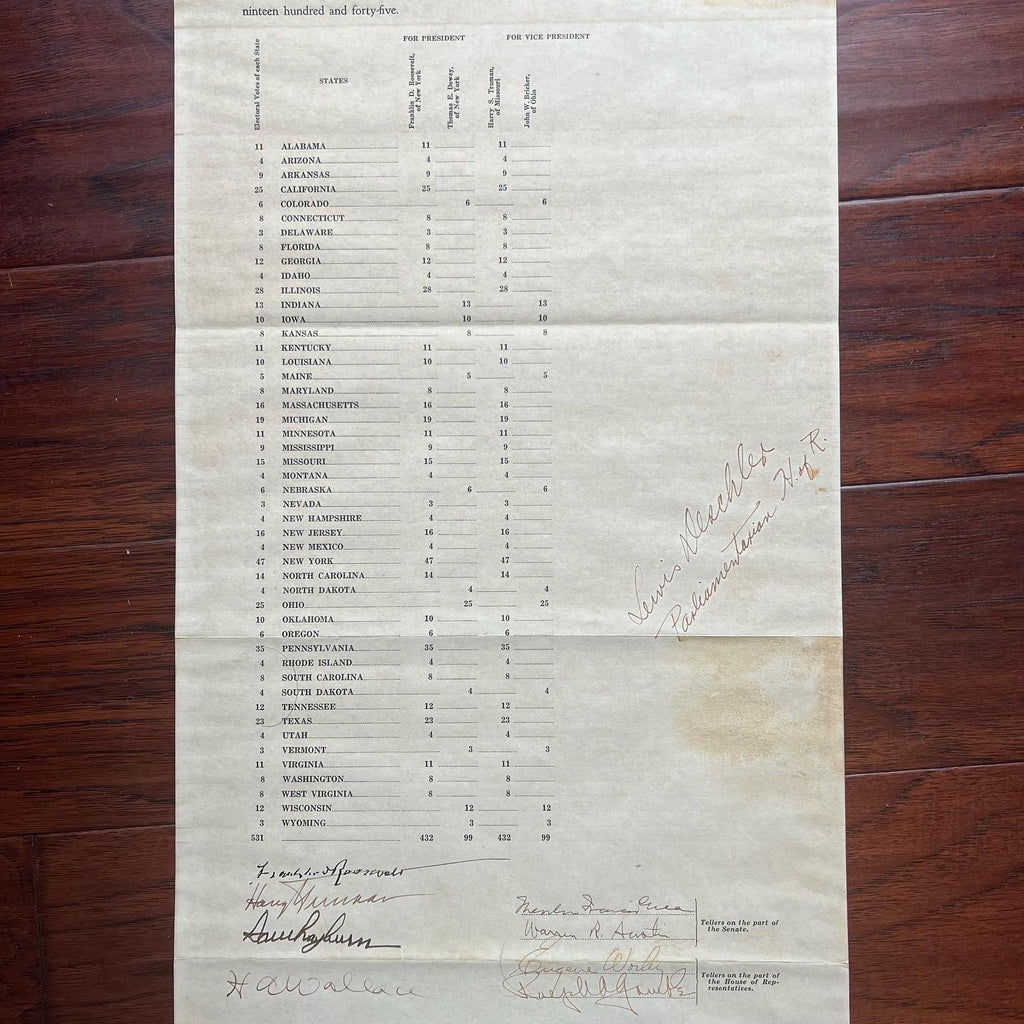 nineteen hundred and forty-five.
FOR PRESIDENT FOR VICE PRESIDENT
Electoral Votes of each State
STATES
Franklin D. Roosevelt, of New York
Thomas E. Dewey, of New York
Harry S. Truman, of Missouri
John W. Bricker, of Ohio
11 ALABAMA 11 11
4 ARIZONA 4 4
9 ARKANSAS 9 9
25 CALIFORNIA 25 25
6 COLORADO 6 6
8 CONNECTICUT 8 8
3 DELAWARE 3 3
8 FLORIDA 8 8
12 GEORGIA 12 12
4 IDAHO 4 4
28 ILLINOIS 28 28
13 INDIANA 13 13
10 IOWA 10 10
8 KANSAS 8 8
11 KENTUCKY 11 11
10 LOUISIANA 10 10
5 MAINE 5 5
8 MARYLAND 8 8
16 MASSACHUSETTS 16 16
19 MICHIGAN 19 19
11 MINNESOTA 11 11
9 MISSISSIPPI 9 9
15 MISSOURI 15 15
4 MONTANA 4 4
6 NEBRASKA 6 6
3 NEVADA 3 3
4 NEW HAMPSHIRE 4 4
16 NEW JERSEY 16 16
4 NEW MEXICO 4 4
47 NEW YORK 47 47
14 NORTH CAROLINA 14 14
4 NORTH DAKOTA 4 4
25 OHIO 25 25
10 OKLAHOMA 10 10
6 OREGON 6 6
35 PENNSYLVANIA 35 35
4 RHODE ISLAND 4 4
8 SOUTH CAROLINA 8 8
4 SOUTH DAKOTA 4 4
12 TENNESSEE 12 12
23 TEXAS 23 23
4 UTAH 4 4
3 VERMONT 3 3
11 VIRGINIA 11 11
8 WASHINGTON 8 8
8 WEST VIRGINIA 8 8
12 WISCONSIN 12 12
3 WYOMING 3 3
531 432 99 432 99
Lewis Deschler
Parliamentarian H. of R.
Franklin D Roosevelt
Harry Truman
Sam Rayburn
H A Wallace
Francis Green
Warren R. Austin
Tellers on the part of
the Senate.
Eugene Worley
Ralph A Gamble
Tellers on the part of
the House of Rep-
resentatives.